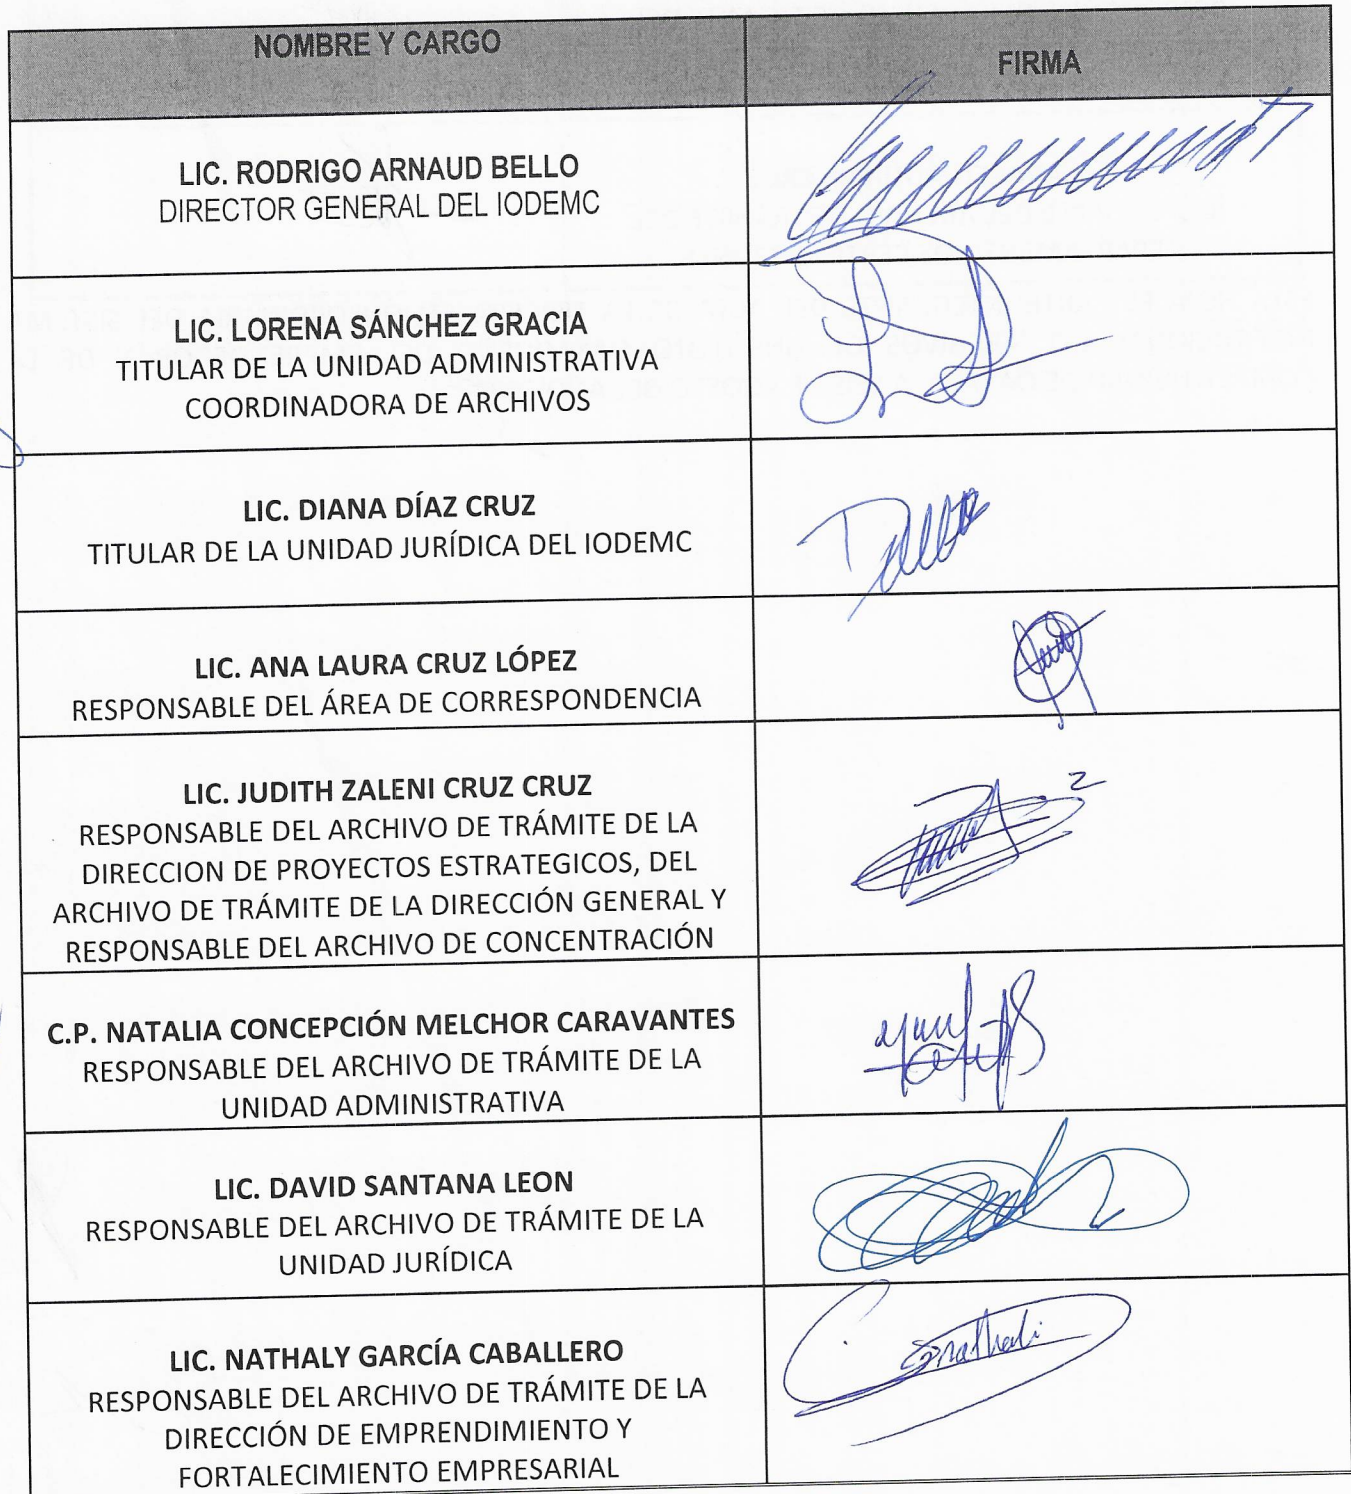 NOMBRE Y CARGO
FIRMA
LIC. RODRIGO ARNAUD BELLO
DIRECTOR GENERAL DEL IODEMC
LIC. LORENA SÁNCHEZ GRACIA
TITULAR DE LA UNIDAD ADMINISTRATIVA
COORDINADORA DE ARCHIVOS
LIC. DIANA DÍAZ CRUZ
TITULAR DE LA UNIDAD JURÍDICA DEL IODEMC
LIC. ANA LAURA CRUZ LÓPEZ
RESPONSABLE DEL ÁREA DE CORRESPONDENCIA
LIC. JUDITH ZALENI CRUZ CRUZ
RESPONSABLE DEL ARCHIVO DE TRÁMITE DE LA
DIRECCION DE PROYECTOS ESTRATEGICOS, DEL
ARCHIVO DE TRÁMITE DE LA DIRECCIÓN GENERAL Y
RESPONSABLE DEL ARCHIVO DE CONCENTRACIÓN
C.P. NATALIA CONCEPCIÓN MELCHOR CARAVANTES
RESPONSABLE DEL ARCHIVO DE TRÁMITE DE LA
UNIDAD ADMINISTRATIVA
LIC. DAVID SANTANA LEON
RESPONSABLE DEL ARCHIVO DE TRÁMITE DE LA
UNIDAD JURÍDICA
LIC. NATHALY GARCÍA CABALLERO
RESPONSABLE DEL ARCHIVO DE TRÁMITE DE LA
DIRECCIÓN DE EMPRENDIMIENTO Y
FORTALECIMIENTO EMPRESARIAL